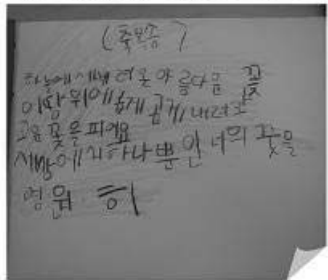 (축복송)
하늘에서 내려온 아름다운 꽃
이땅위에 곱게 곱게 내려와
고운 꽃을 피에요
세상에서 하나 뿐인 너의 꽃을
영원히